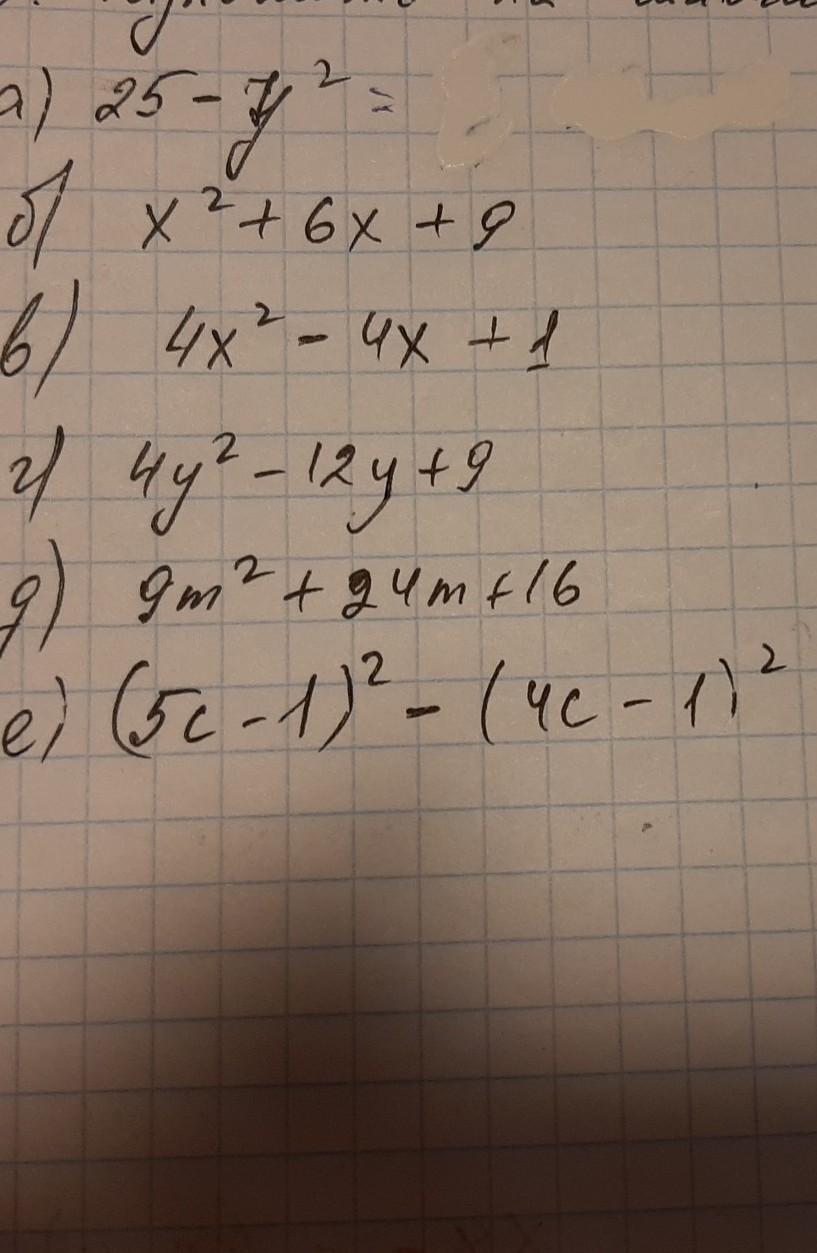 а) 25 - y² =
б) x² + 6x + 9
в) 4x² - 4x + 1
г) 4y² - 12y + 9
д) 9m² + 24m + 16
е) (5c - 1)² - (4c - 1)²